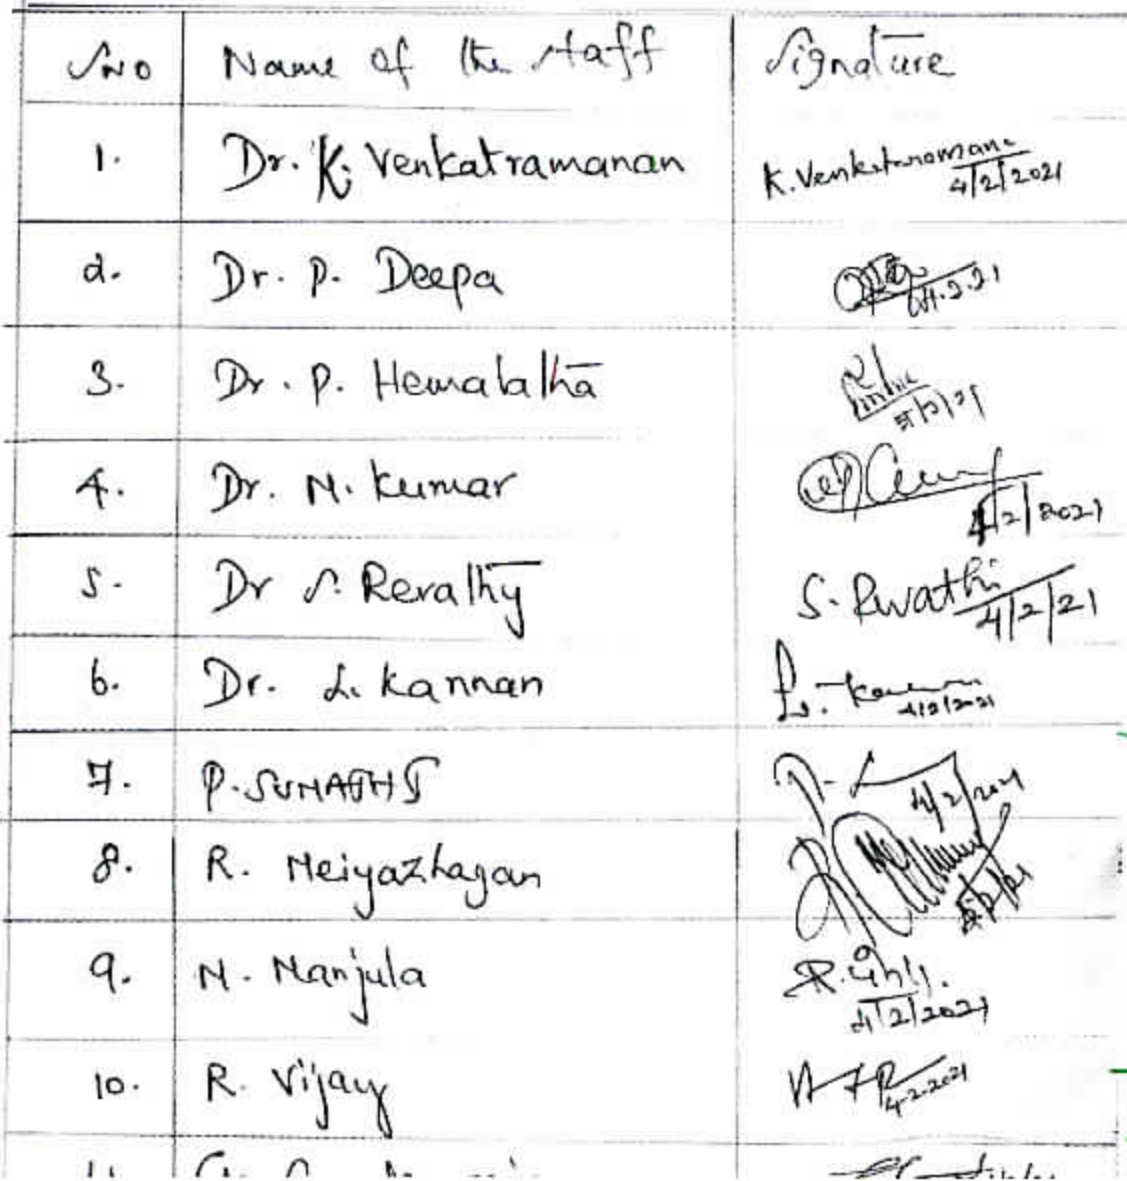 S NO Name of the staff Signature
1. Dr. K. Venkatramanan K. Venkatramanan 4/2/2021
2. Dr. P. Deepa 4.2.21
3. Dr. P. Hemalatha
4. Dr. M. Kumar 4/2/2021
5. Dr S. Revathy S. Revathi 4/2/21
6. Dr. L. Kannan L. 4/2/2021
7. P. SUMATHI 4/2/2021
8. R. Meiyazhagan
9. M. Manjula 4/2/2021
10. R. Vijay 4.2.2021